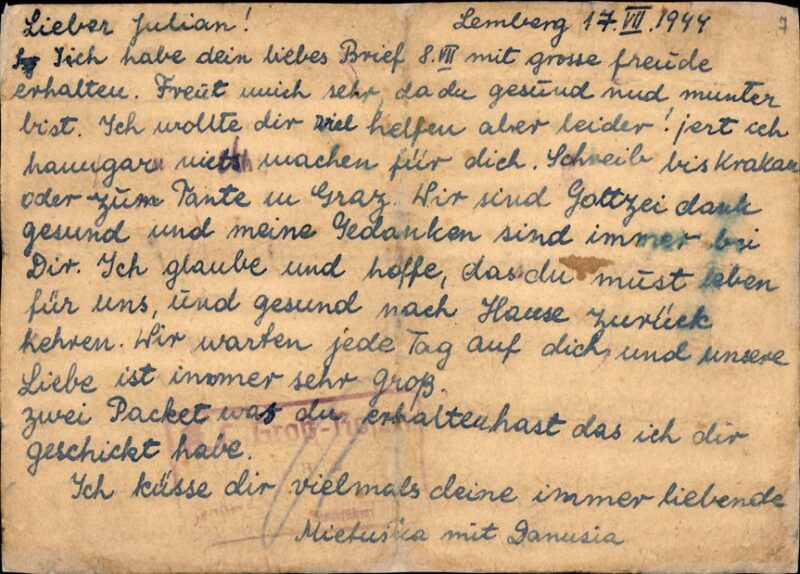 Lieber Julian! Lemberg 17.VII.1944 7
Ich habe dein liebes Brief 8.VII mit grosse freude
erhalten. Freut mich sehr, da du gesund und munter
bist. Ich wollte dir viel helfen aber leider! ich
machen für dich. Schreib bis Krakau
oder zum Tante in Graz. Wir sind Gottzei dank
gesund und meine Gedanken sind immer bei
Dir. Ich glaube und hoffe, das du must leben
für uns, und gesund nach Hause zurück
kehren. Wir warten jede Tag auf dich, und unsere
Liebe ist immer sehr groß.
zwei Packet was du erhalten hast das ich dir
geschickt habe.
Groß-Ro
Ich küsse dir vielmals deine immer liebende
Mietuśka mit Danusia